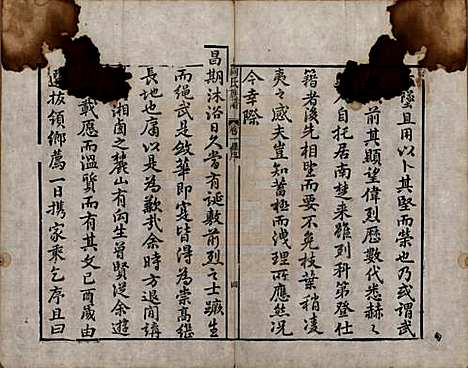 墜且用以卜其堅而榮也乃或謂武
前其顯望偉烈歷數代悉赫之
自托居南楚来雖列科第登仕
籍者後先相望而要不免枝葉稍凌
夷之感夫豈知蓄極而洩理所應然况
今幸際
昌期沐浴日久當有誕敷前烈之士蹶生
而绳武是敛華即寔皆得為崇高繼
長地也庸以是為歉哉余時方退閒講
湘卤之麓山有向生曾賢從余遊
載愿而溫質而有其文已酉歲由
選抜領鄉薦一日携家乘乞序且曰